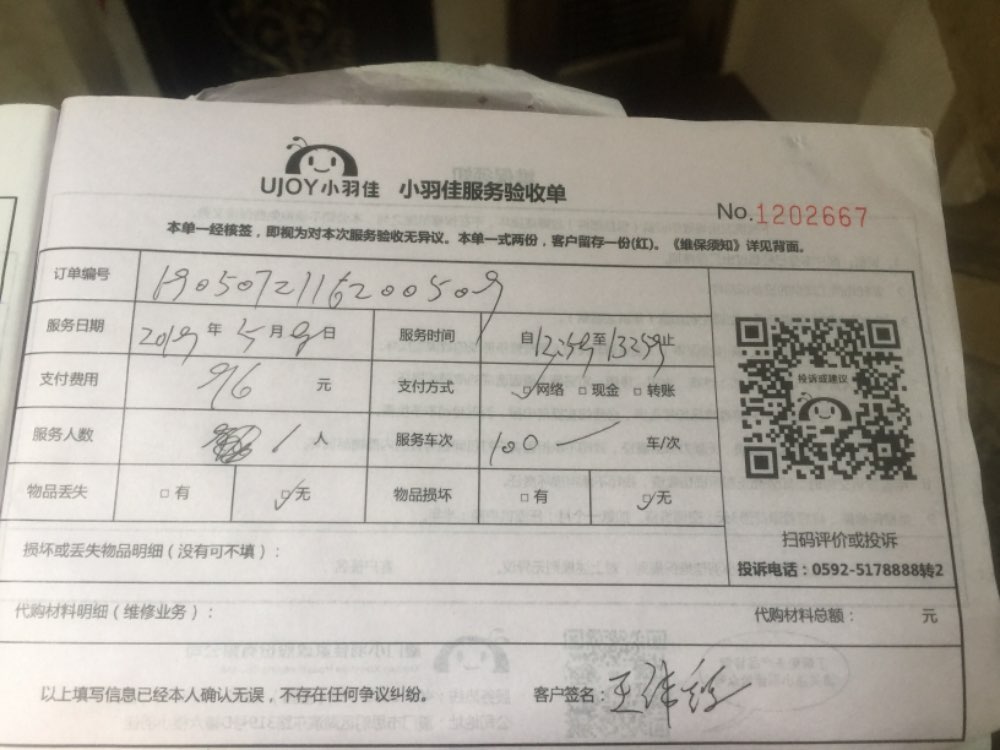 UJOY小羽佳 小羽佳服务验收单
No.1202667
本单一经核签，即视为对本次服务验收无异议。本单一式两份，客户留存一份(红)。《维保须知》详见背面。
订单编号 1905072116200509
服务日期 2019 年 5 月 9 日 服务时间 自 12:59 至 13:59 止
支付费用 96 元 支付方式 网络 现金 转账
服务人数 1 人 服务车次 100 一 车/次
物品丢失 有 无 物品损坏 有 无
投诉或建议
扫码评价或投诉
投诉电话：0592-5178888转2
损坏或丢失物品明细（没有可不填）：
代购材料明细（维修业务）： 代购材料总额： 元
以上填写信息已经本人确认无误，不存在任何争议纠纷。 客户签名